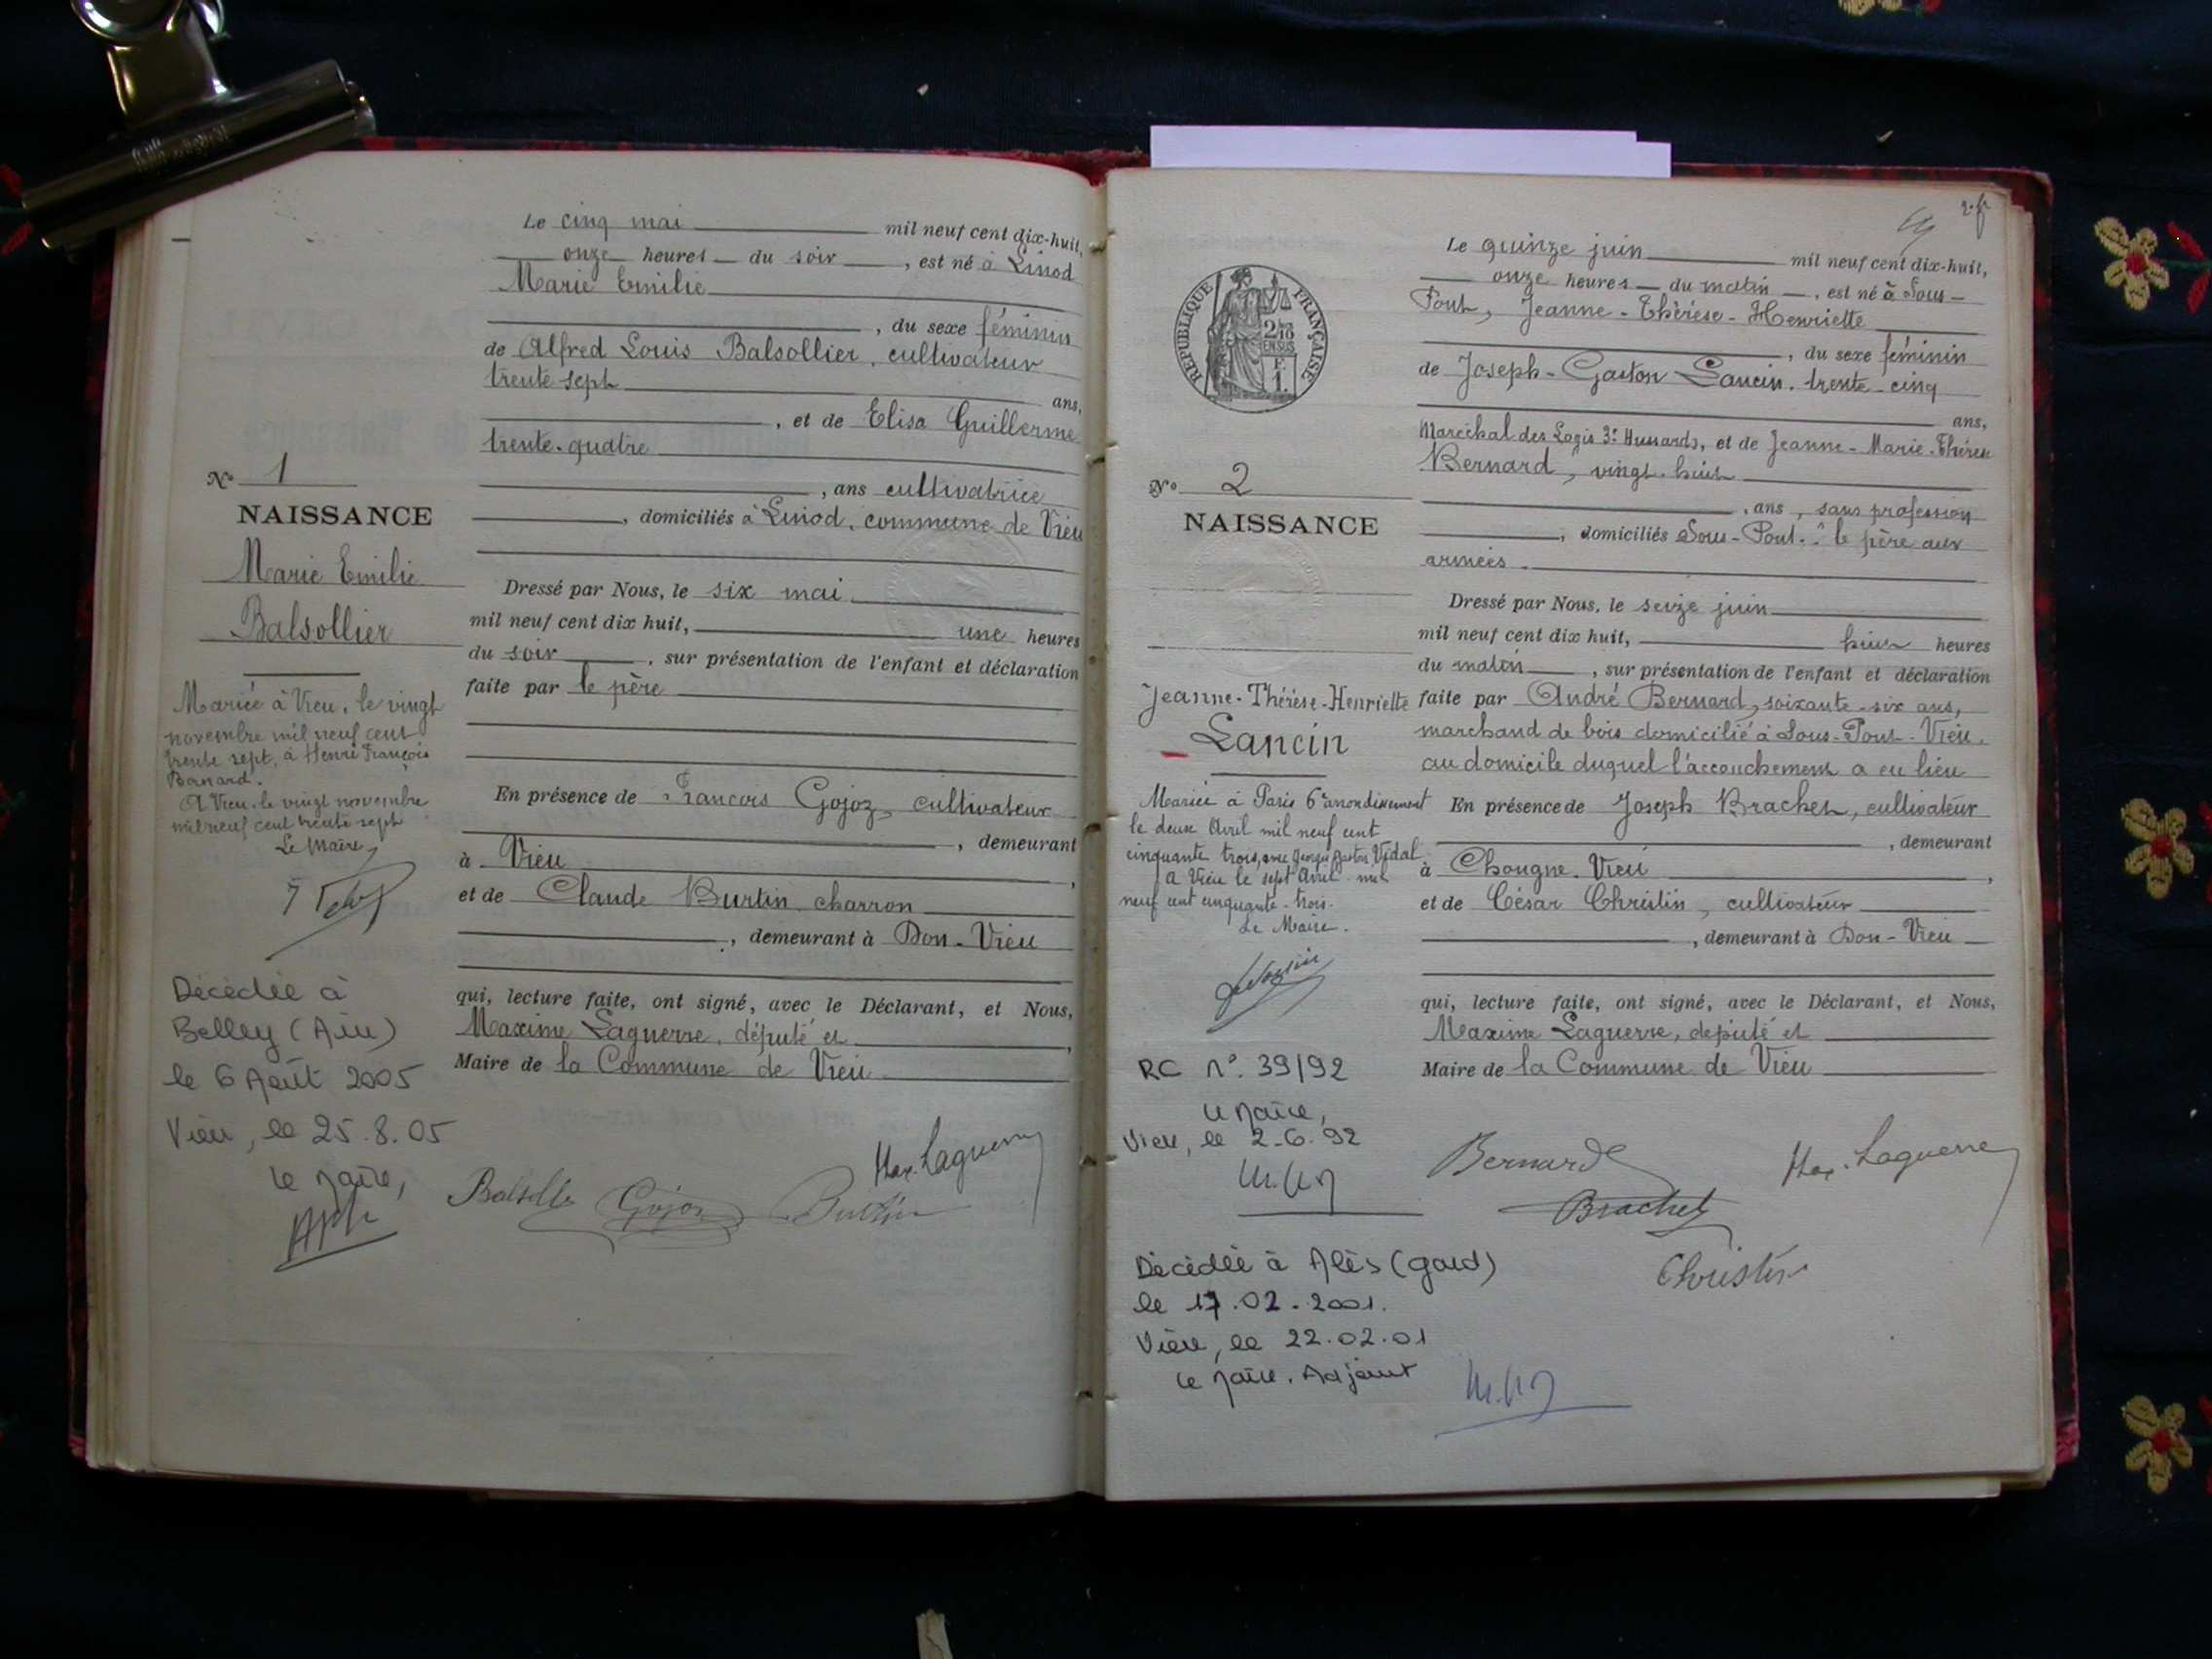 Le cinq mai mil neuf cent dix-huit,
onze heures du soir, est né à Linod
Marie Emilie
, du sexe féminin
de Alfred Louis Balsollier, cultivateur
trente sept
ans,
, et de Elisa Guillerme
trente-quatre
, ans cultivatrice
, domiciliés à Linod, commune de Vieu
Dressé par Nous, le six mai
mil neuf cent dix huit, une heures
du soir, sur présentation de l'enfant et déclaration
faite par le père
En présence de François Gojoz, cultivateur
, demeurant
à Vieu,
et de Claude Burtin, charron
, demeurant à Don-Vieu
qui, lecture faite, ont signé, avec le Déclarant, et Nous,
Maxime Laguerre, député et,
Maire de la Commune de Vieu
Max. Laguerre
Balsollier Gojoz Burtin
N° 1
NAISSANCE
Marie Emilie
Balsollier
Mariée à Vieu, le vingt
novembre mil neuf cent
trente sept, à Henri François
Bernard.
A Vieu, le vingt novembre
mil neuf cent trente sept
Le Maire,
Décédée à
Belley (Ain)
le 6 Août 2005
Vieu, le 25.8.05
Le Maire,
2. f
Le quinze juin mil neuf cent dix-huit,
onze heures du matin, est né à Sous-
Pont, Jeanne-Thérèse-Henriette
, du sexe féminin
de Joseph-Gaston Lancin, trente-cinq
ans,
Maréchal des Logis 3e Hussards, et de Jeanne-Marie-Thérèse
Bernard, vingt-huit
, ans, sans profession
, domiciliés Sous-Pont, le père aux
armées.
Dressé par Nous, le seize juin
mil neuf cent dix huit, huit heures
du matin, sur présentation de l'enfant et déclaration
faite par André Bernard, soixante-six ans,
marchand de bois domicilié à Sous-Pont-Vieu,
au domicile duquel l'accouchement a eu lieu
En présence de Joseph Brachet, cultivateur
, demeurant
à Chougne. Vieu,
et de César Christin, cultivateur
, demeurant à Don-Vieu
qui, lecture faite, ont signé, avec le Déclarant, et Nous,
Maxime Laguerre, député et
Maire de la Commune de Vieu
Bernard Max. Laguerre
Brachet
Christin
RÉPUBLIQUE FRANÇAISE
2/10
EN SUS
F.
1.
N° 2
NAISSANCE
Jeanne-Thérèse-Henriette
Lancin
Mariée à Paris 6e arrondissement
le deux Avril mil neuf cent
cinquante trois, avec Georges Gaston Vidal
A Vieu le sept Avril mil
neuf cent cinquante-trois.
Le Maire.
RC N°. 39/92
Le Maire,
Vieu, le 2-6.92
Décédée à Alès (Gard)
le 17.02.2001.
Vieu, le 22.02.01
Le Maire. Adjoint